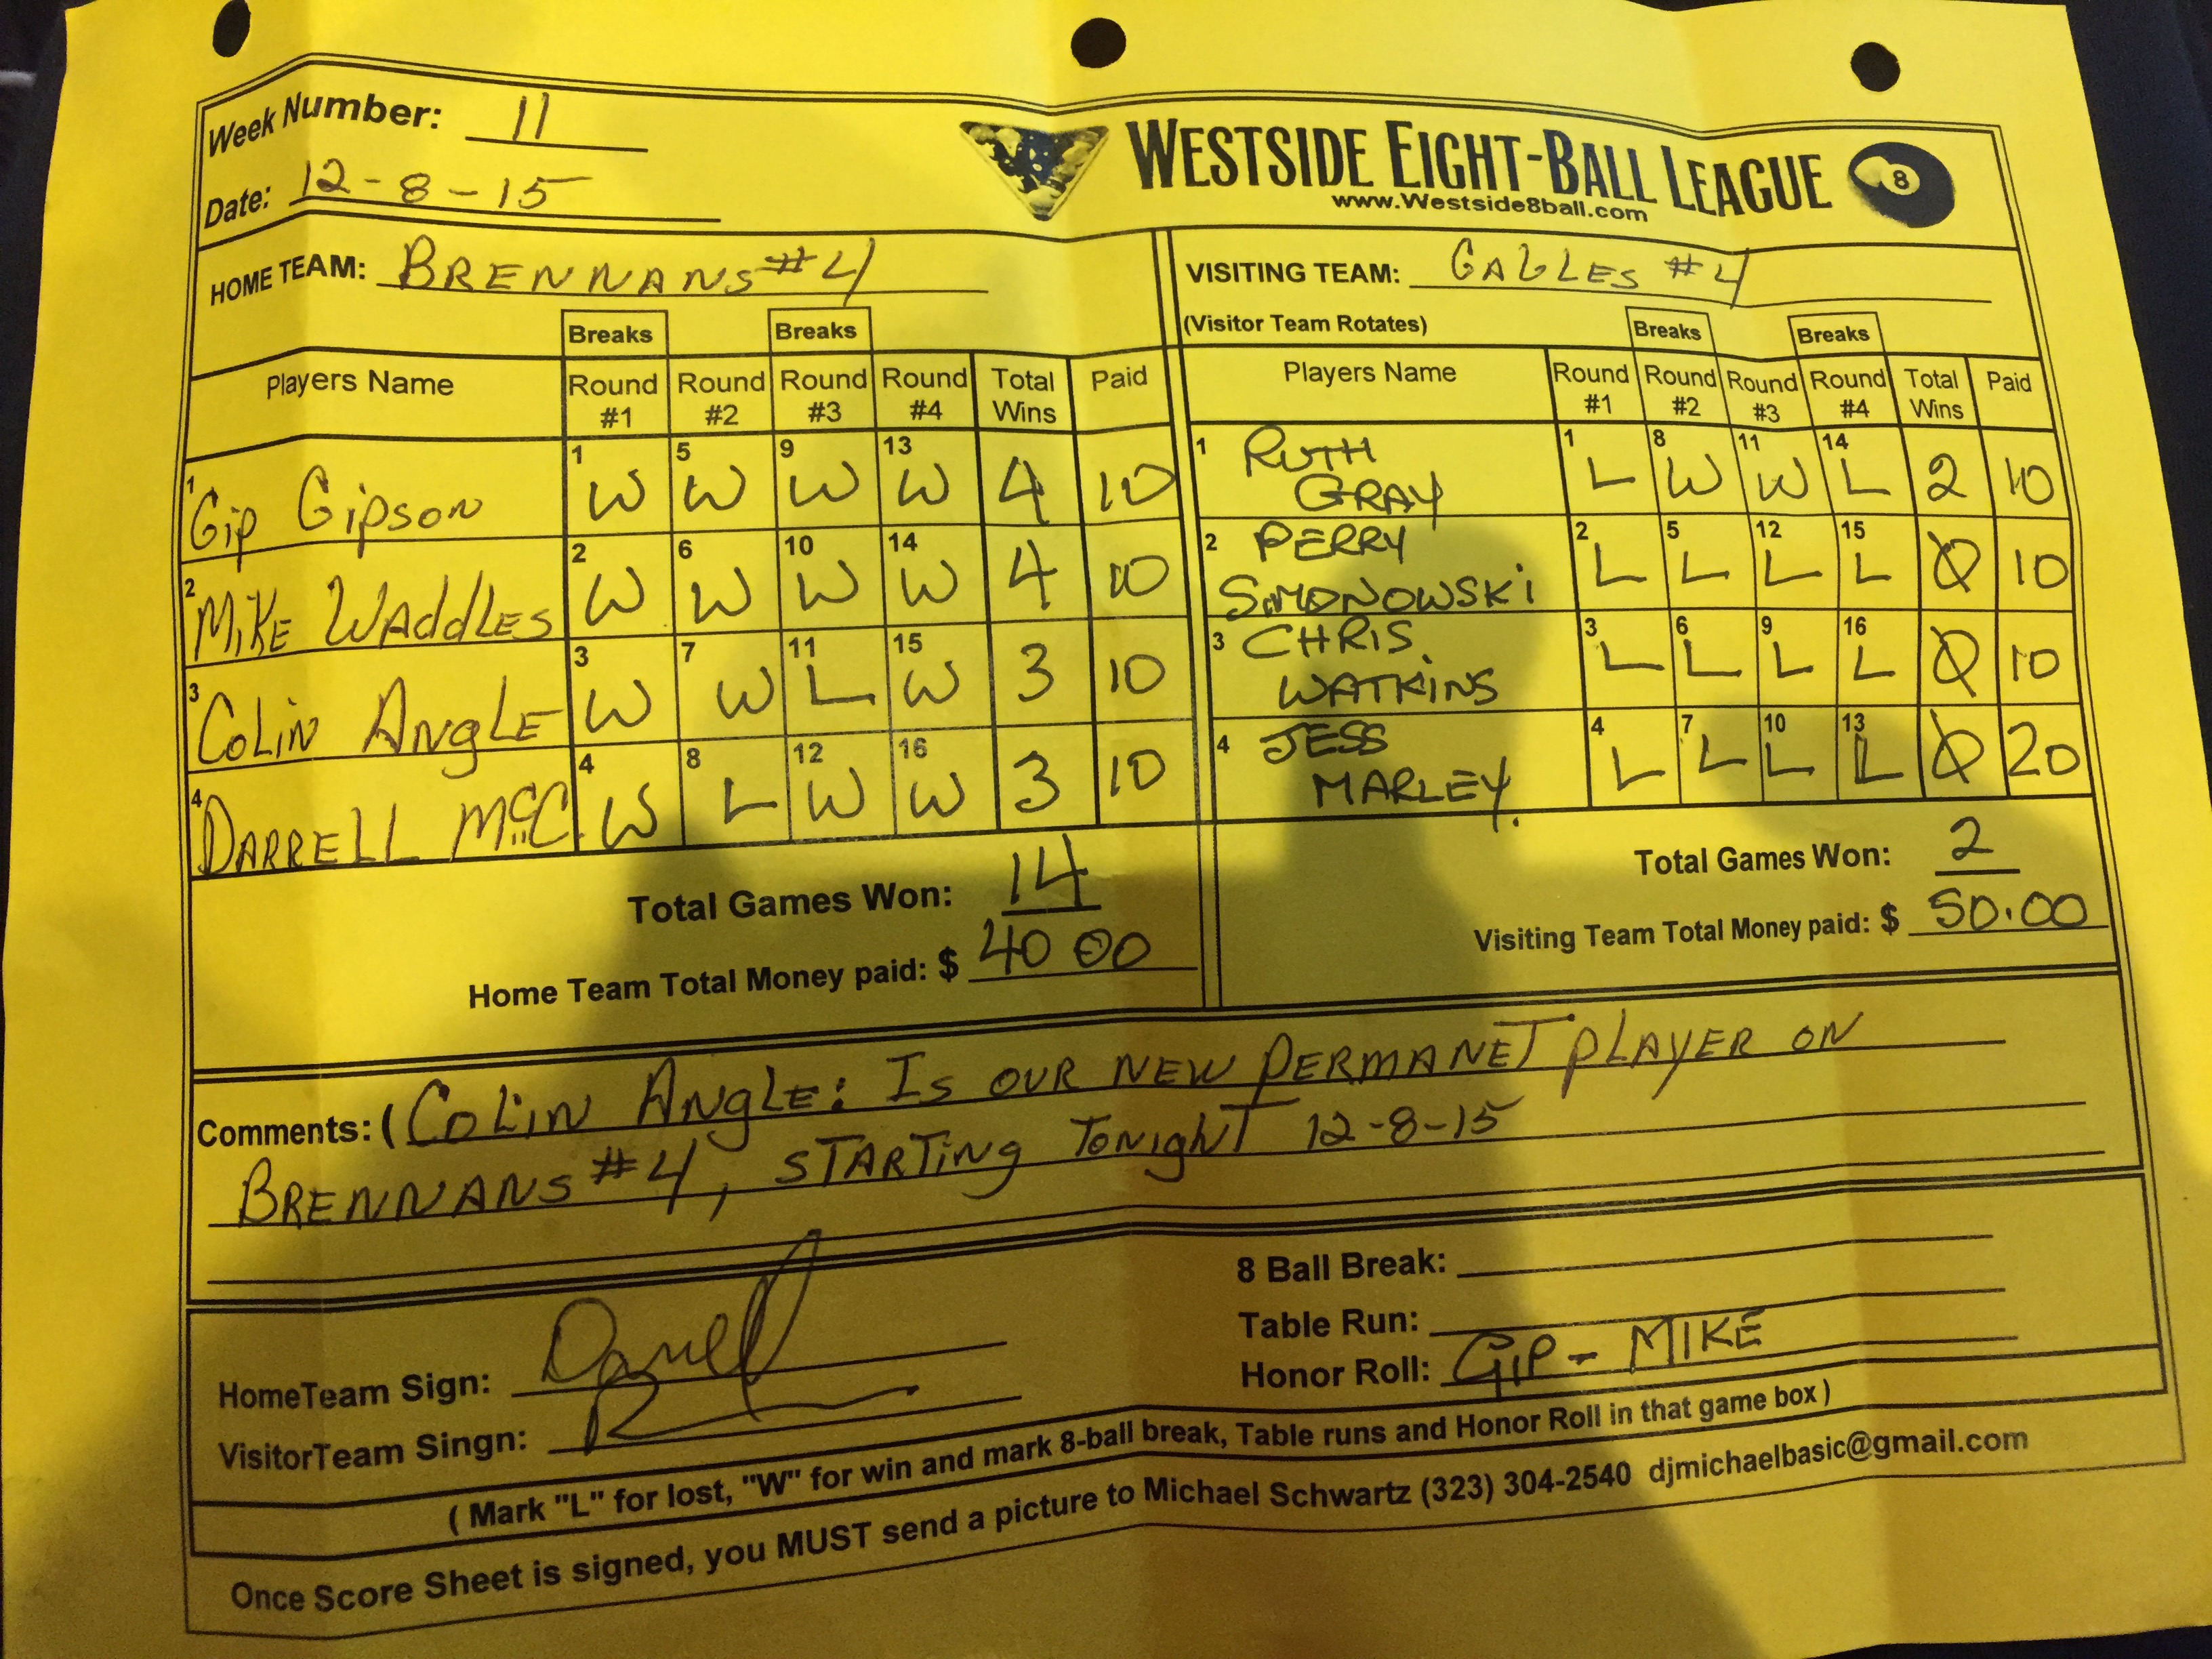 Week Number: 11
Date: 12-8-15
WESTSIDE EIGHT-BALL LEAGUE 8
www.Westside8ball.com
HOME TEAM: BRENNANS #4
VISITING TEAM: GABLES #4
(Visitor Team Rotates)
Breaks Breaks
Breaks Breaks
Players Name Round #1 Round #2 Round #3 Round #4 Total Wins Paid
1 Gip Gipson 1 W 5 W 9 W 13 W 4 10
2 MIKE WADDLES 2 W 6 W 10 W 14 W 4 10
3 COLIN ANGLE 3 W 7 W 11 L 15 W 3 10
4 DARRELL McC. 4 W 8 L 12 W 16 W 3 10
Total Games Won: 14
Home Team Total Money paid: $ 40 00
Players Name Round #1 Round #2 Round #3 Round #4 Total Wins Paid
1 RUTH GRAY 1 L 8 W 11 W 14 L 2 10
2 PERRY SIMONOWSKI 2 L 5 L 12 L 15 L 0 10
3 CHRIS WATKINS 3 L 6 L 9 L 16 L 0 10
4 JESS MARLEY. 4 L 7 L 10 L 13 L 0 20
Total Games Won: 2
Visiting Team Total Money paid: $ 50.00
Comments: (COLIN ANGLE: IS OUR NEW PERMANET PLAYER ON
BRENNANS #4, STARTING TONIGHT 12-8-15
HomeTeam Sign: Darrell
VisitorTeam Singn:
8 Ball Break:
Table Run:
Honor Roll: GIP - MIKE
( Mark "L" for lost, "W" for win and mark 8-ball break, Table runs and Honor Roll in that game box )
Once Score Sheet is signed, you MUST send a picture to Michael Schwartz (323) 304-2540 djmichaelbasic@gmail.com